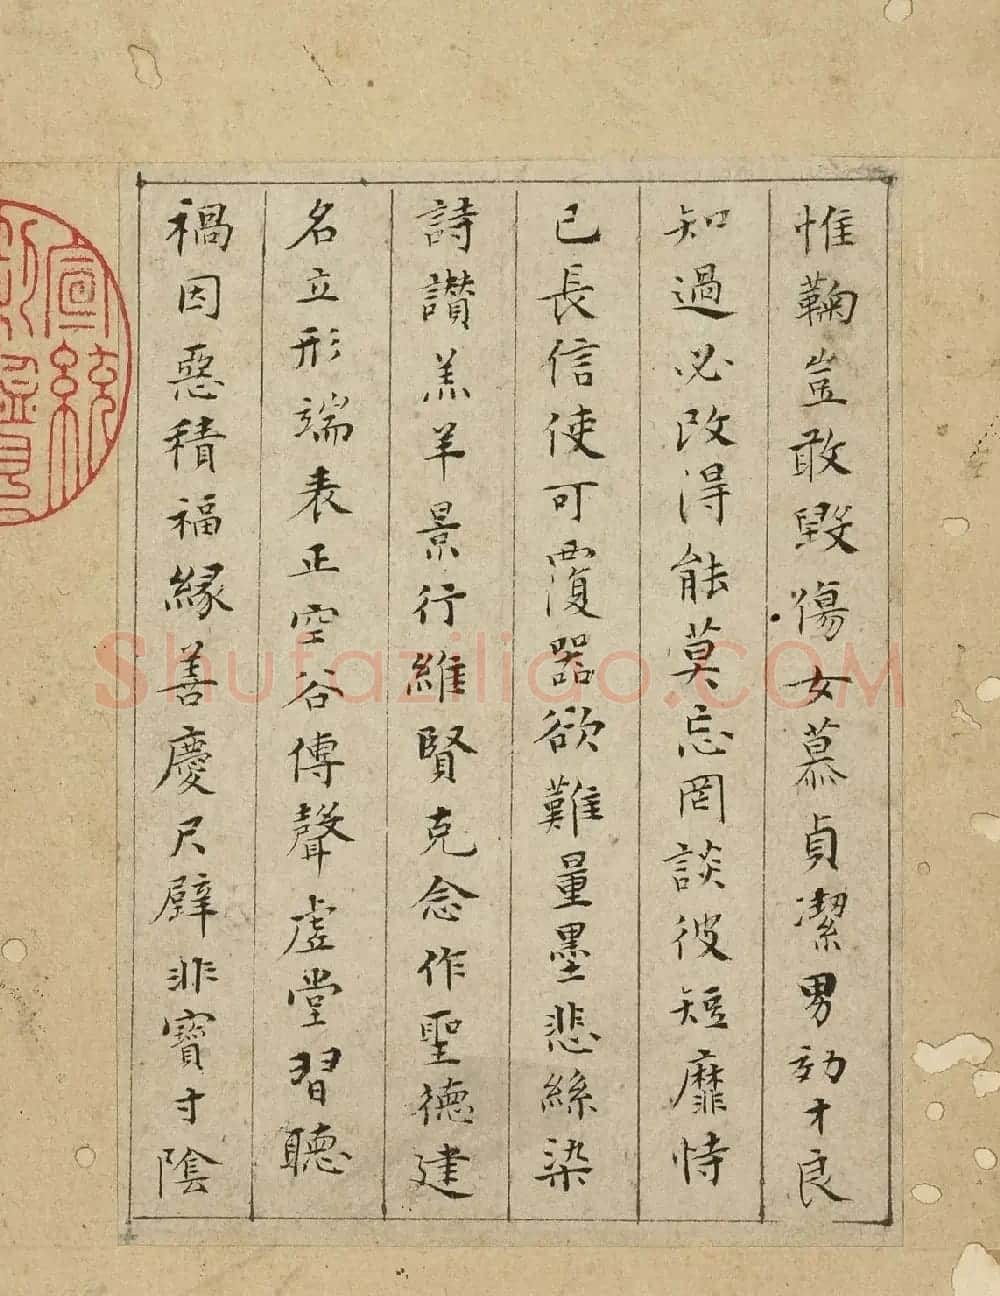 惟鞠豈敢毀傷女慕貞潔男効才良
知過必改得能莫忘罔談彼短靡恃
己長信使可覆器欲難量墨悲絲染
詩讃羔羊景行維賢克念作聖德建
名立形端表正空谷傳聲虛堂習聽
禍因惡積福緣善慶尺璧非寶寸陰
宣統
Shufaziliao.COM